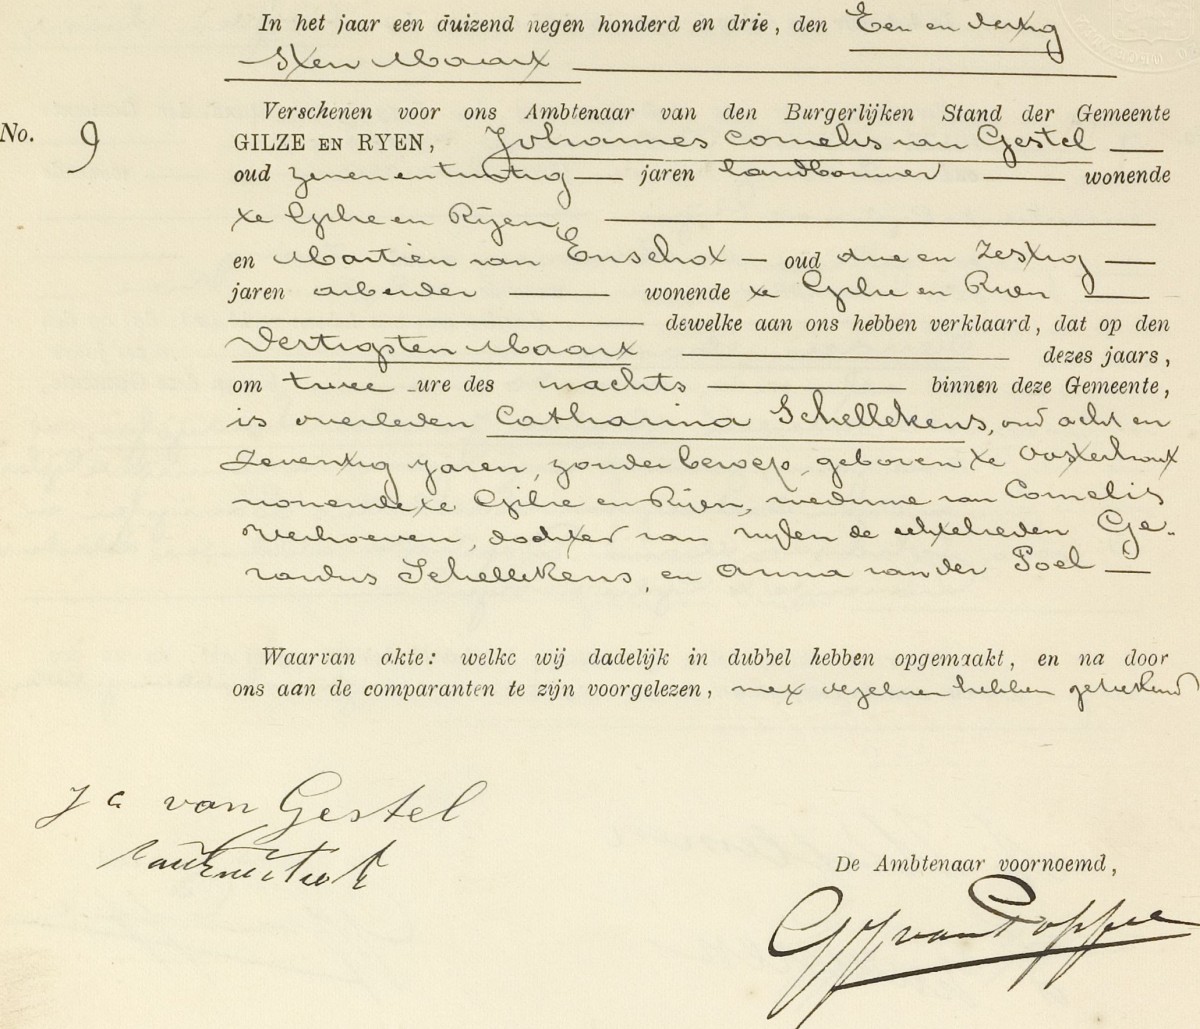 In het jaar een duizend negen honderd en drie, den Een en dertig
sten Maart
Verschenen voor ons Ambtenaar van den Burgerlijken Stand der Gemeente
No. 9
GILZE EN RYEN, Johannes Cornelis van Gestel
oud zeven en twintig jaren landbouwer wonende
te Gilze en Rijen,
en Martien van Enschot oud drie en zestig
jaren arbeider wonende te Gilze en Rijen
dewelke aan ons hebben verklaard, dat op den
dertigsten Maart dezes jaars,
om twee ure des nachts binnen deze Gemeente,
is overleden Catharina Schellekens, oud acht en
zeventig jaren, zonder beroep, geboren te Oosterhout
wonende te Gilze en Rijen, weduwe van Cornelis
Verhoeven, dochter van wijlen de echtelieden Ge-
rardus Schellekens, en Anna van der Poel
Waarvan akte: welke wij dadelijk in dubbel hebben opgemaakt, en na door
ons aan de comparanten te zijn voorgelezen, met dezelven hebben geteekend
J C van Gestel
De Ambtenaar voornoemd,
van Poppel